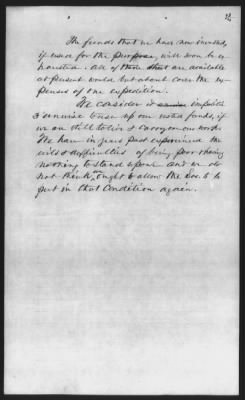 2
The funds that we have now invested,
if used for the purpose, will soon be ex-
hausted. All of these that are available
at present would but about cover the ex-
penses of one expedition.
We consider it unwise impolitic
& unwise to use up our invested funds, if
we are still to live & carry on our work.
We have in years past experienced the
evils & difficulties of being poor & having
nothing to stand upon and we do
not think we ought to allow the Soc. to be
put in that Condition again.